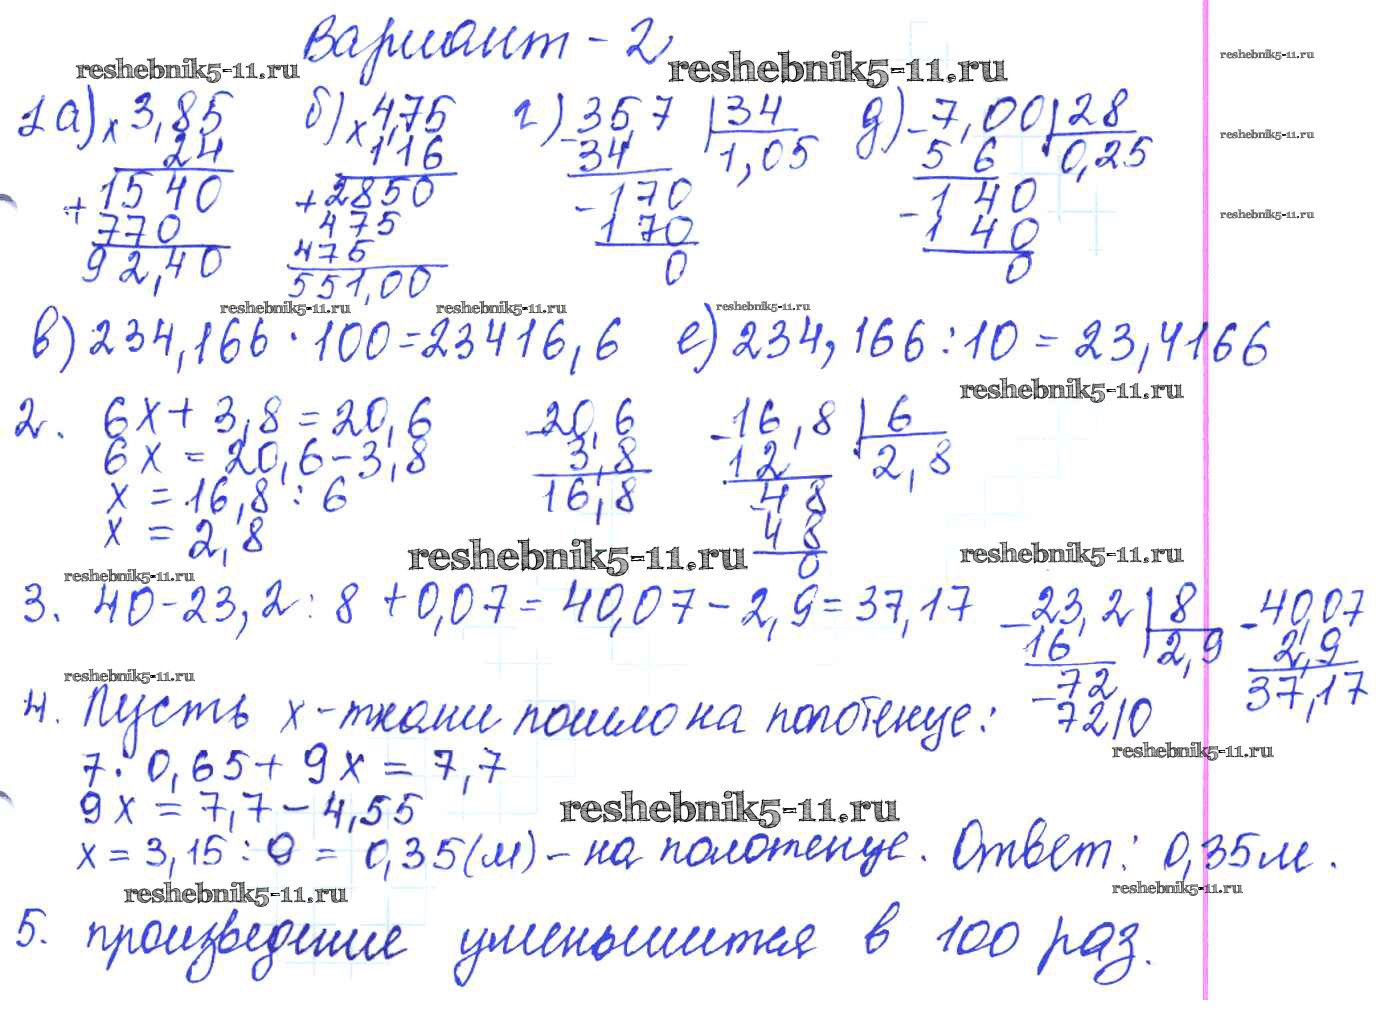 Вариант - 2
reshebnik5-11.ru reshebnik5-11.ru reshebnik5-11.ru
1 а) x 3,85 б) x 475 г) - 357 | 34 д) - 7,00 | 28
24 1,16 34 1,05 5 6 0,25
reshebnik5-11.ru
+ 1540 + 2850 - 170 - 1 40
770 475 170 1 40
reshebnik5-11.ru
92,40 475 0 0
551,00
reshebnik5-11.ru reshebnik5-11.ru reshebnik5-11.ru
в) 234,166 · 100 = 23416,6 е) 234,166 : 10 = 23,4166
reshebnik5-11.ru
2. 6x + 3,8 = 20,6 - 20,6 - 16,8 | 6
6x = 20,6 - 3,8 3,8 12 2,8
x = 16,8 : 6 16,8 - 48
x = 2,8 48
0
reshebnik5-11.ru reshebnik5-11.ru
reshebnik5-11.ru
3. 40 - 23,2 : 8 + 0,07 = 40,07 - 2,9 = 37,17 - 23,2 | 8 - 40,07
16 2,9 2,9
reshebnik5-11.ru
- 72 37,17
72 | 0
4. Пусть x - ткани пошло на полотенце:
reshebnik5-11.ru
7 · 0,65 + 9x = 7,7
9x = 7,7 - 4,55
reshebnik5-11.ru
x = 3,15 : 9 = 0,35 (м) - на полотенце. Ответ: 0,35 м.
reshebnik5-11.ru reshebnik5-11.ru
5. произведение уменьшится в 100 раз.